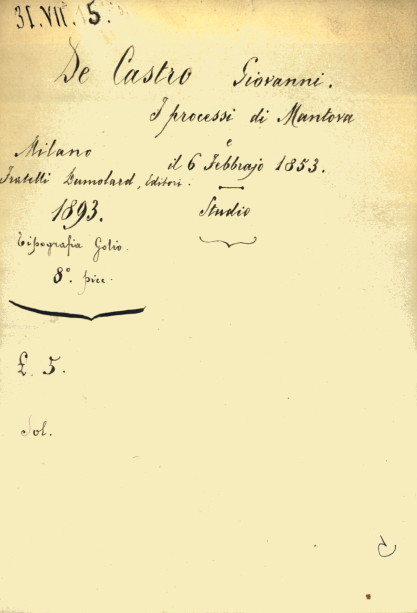 31.VII.5.
De Castro Giovanni.
I processi di Mantova
e
il 6 Febbrajo 1853.
Studio
Milano
Fratelli Dumolard, Editori.
1893.
Tipografia Golio.
8° picc.
£. 5.